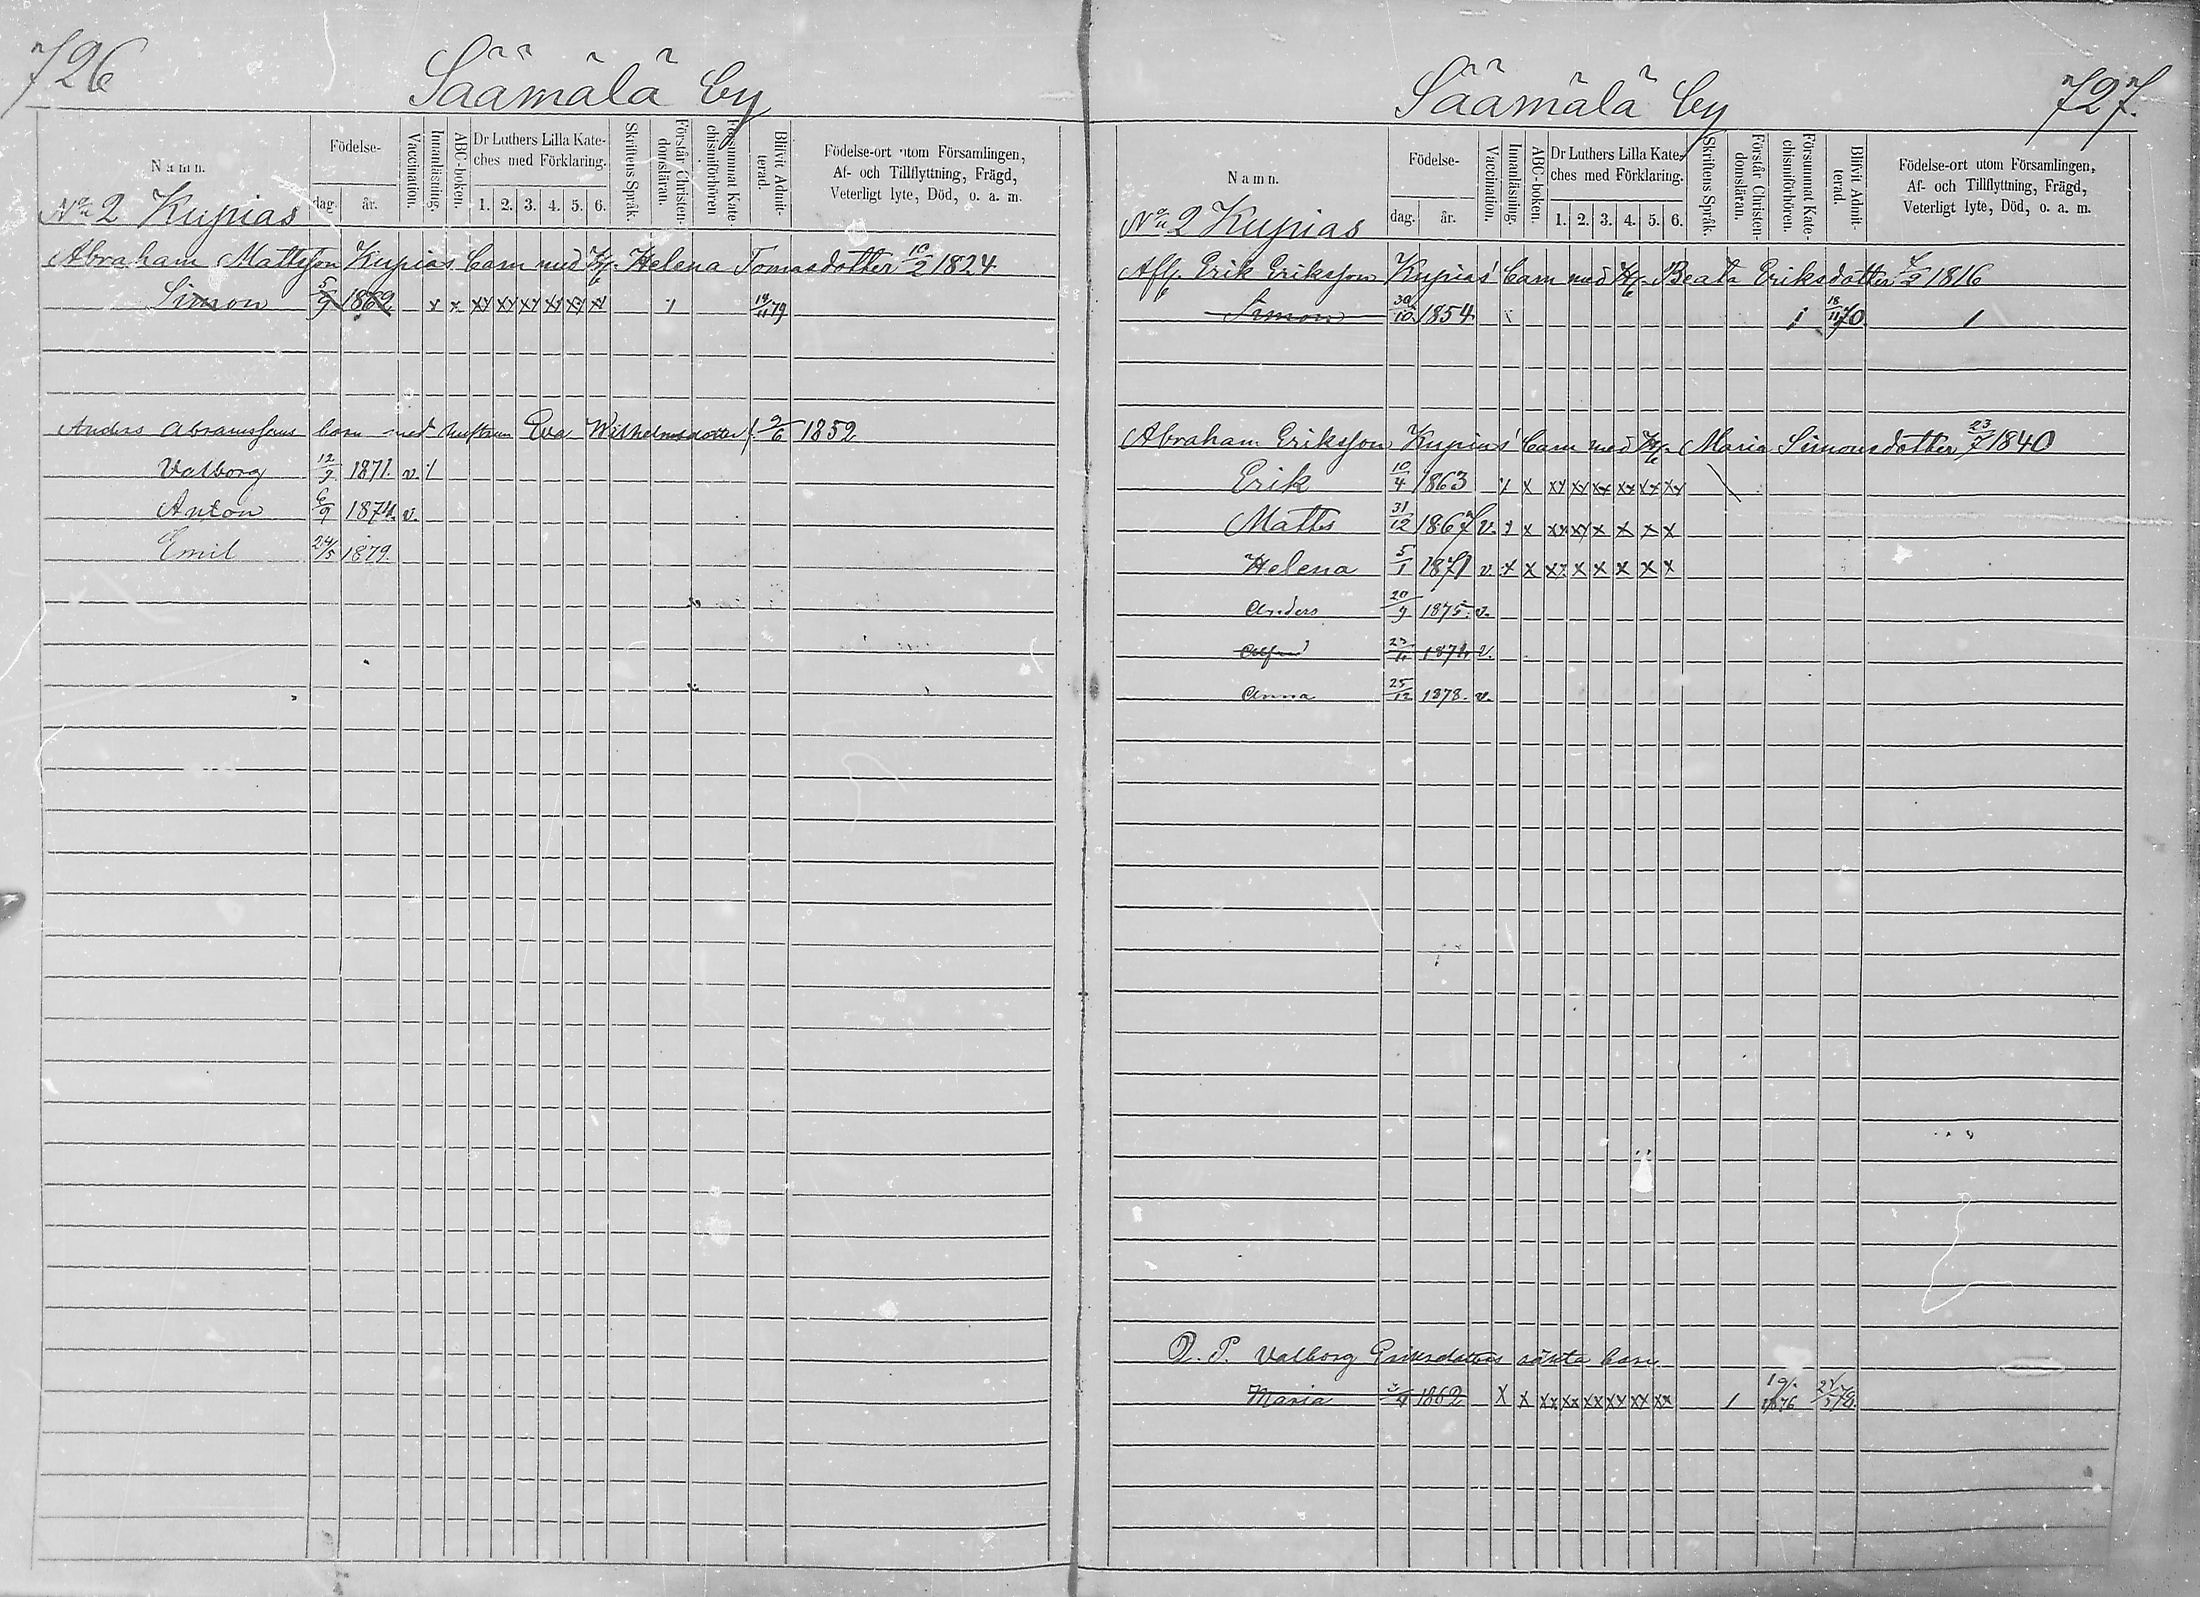 726
Säämälä by
Namn.
Födelse-
dag. år.
Vaccination.
Innanläsning.
ABC-boken.
Dr Luthers Lilla Kate-
ches med Förklaring.
1. 2. 3. 4. 5. 6.
Skriftens Språk.
Förstår Christen-
domsläran.
Försummat Kate-
chismiförhören
Blifvit Admit-
terad.
Födelse-ort utom Församlingen,
Af- och Tillflyttning, Frägd,
Veterligt lyte, Död, o. a. m.
No 2 Kupias
Abraham Mattsson Kupias' barn med H. Helena Tomasdotter 10/2 1824
Simon 5/9 1862 x x xx xx xx xx xx xx 1 14/11 79
Anders Abramssons barn med hustrun Eva Wilhelmsdotter f. 9/6 1852
Valborg 12/9 1871. v.
Anton 6/9 1874. v.
Emil 24/5 1879.
Säämälä by
727.
Namn.
Födelse-
dag. år.
Vaccination.
Innanläsning.
ABC-boken.
Dr Luthers Lilla Kate-
ches med Förklaring.
1. 2. 3. 4. 5. 6.
Skriftens Språk.
Förstår Christen-
domsläran.
Försummat Kate-
chismiförhören.
Blifvit Admit-
terad.
Födelse-ort utom Församlingen,
Af- och Tillflyttning, Frägd,
Veterligt lyte, Död, o. a. m.
No 2 Kupias
Afl. Erik Eriksson Kupias' barn med H. Beata Eriksdotter 1816
Simon 30/10 1854 18/11 70. 1
Abraham Eriksson Kupias' barn med H. Maria Simonsdotter 23/7 1840
Erik 10/4 1863 x x xx xx xx xx xx xx
Matts 31/12 1867 v. x x xx xx x x x x
Helena 5/1 1871 v. x x xx x x x x x
Anders 20/9 1875. v.
Alfred 1874 v.
Anna 25/12 1878. v.
Q. P. Valborg Eriksdotters oäkta barn
Maria 1862 x x xx xx xx xx xx xx 1 1876